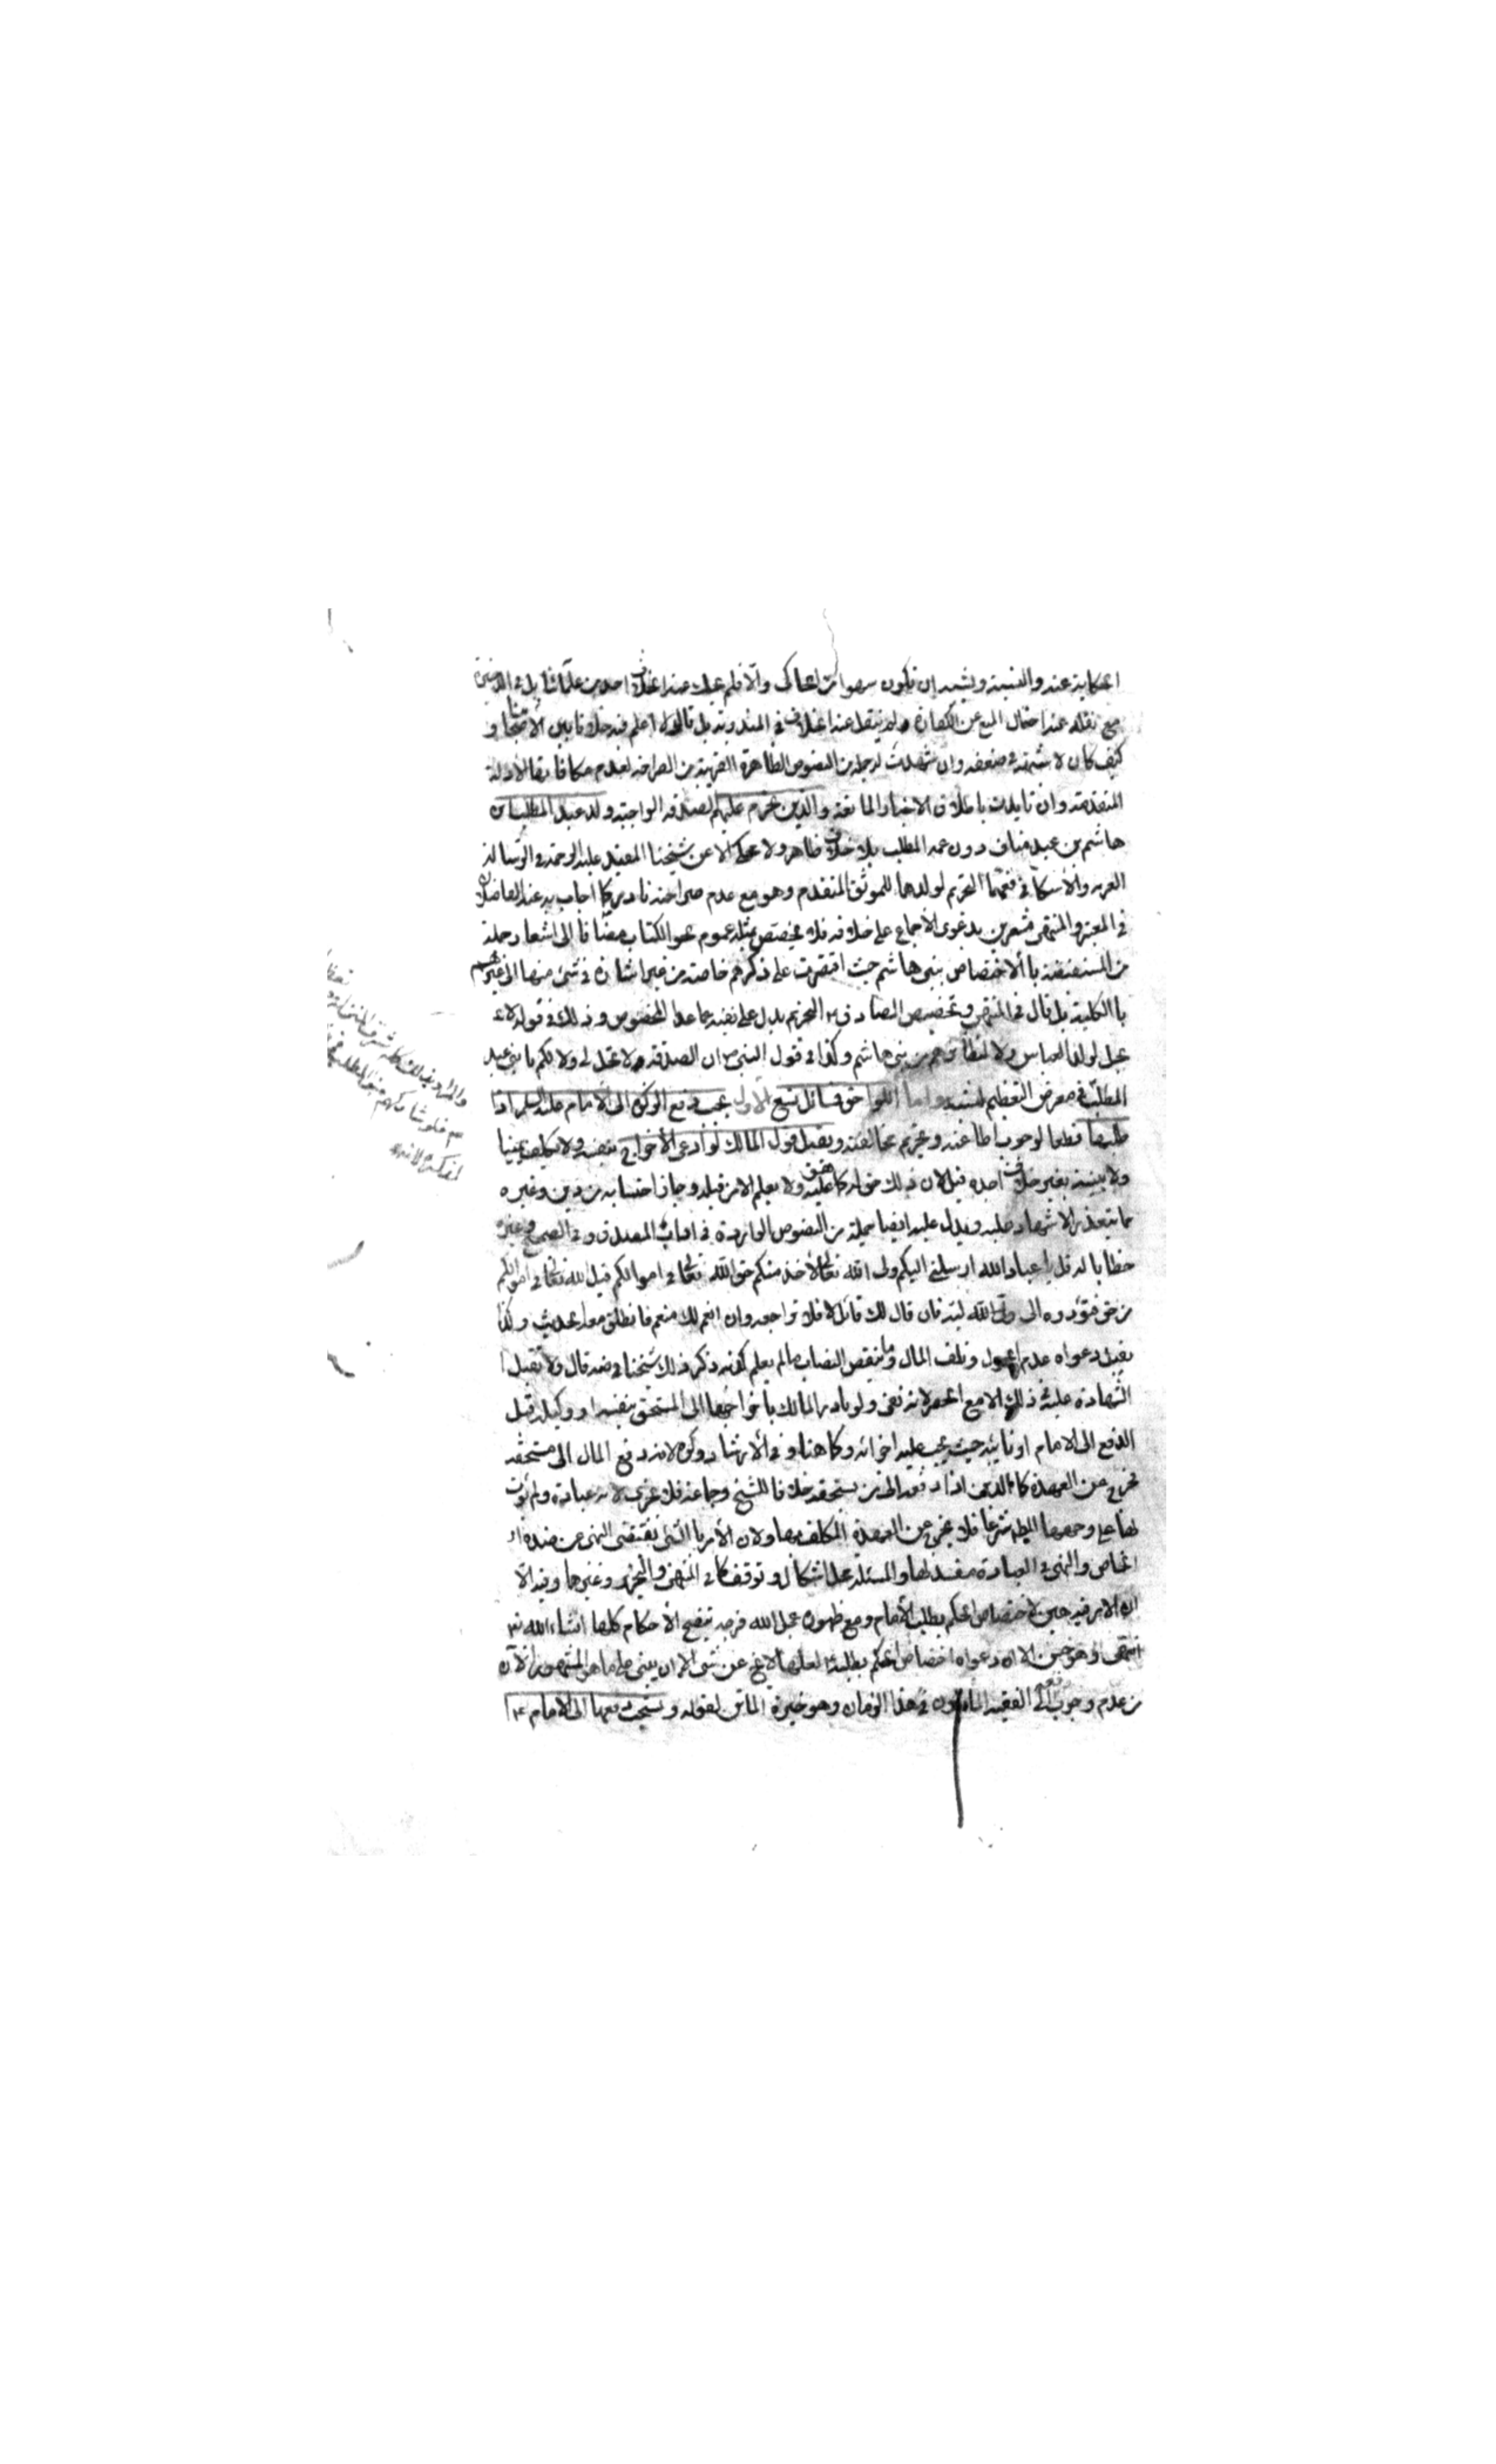 الحكاية عنه والنسبة ويشبه ان يكون سهوا من الحاكى والا فلم يحك عنه الخلاف احد من علمائنا بل
مع نقله عنه احتمال المنع عن الكفارة ولم ينقل عنه الخلاف فى المندوبة بل قالوا لا اعلم فيه خلافا بين الاصحاب و
كيف كان لا شبهة فى ضعفه وان شهدت له جملة من النصوص الظاهرة القريبة من الصراحة لعدم مكافاتها لادلة
المتقدمة وان تايدت باطلاق الاخبار المانعة والذين يحرم عليهم الصدقة الواجبة ولد عبد المطلب بن
هاشم بن عبد مناف دون عمه المطلب بلا خلاف ظاهر ولا محكى الا عن شيخنا المفيد عليه الرحمة فى الرسالة
الغرية والاسكافى فعمما التحريم لولدهما للموثق المتقدم وهو مع عدم صراحته نادر كما اجاب به عنه الفاضلان
فى المعتبر والمنتهى مشعرين بدعوى الاجماع على خلافه فلا يخصص بمثله عموم نحو الكتاب مضافا الى اشعار جملة
من المستفيضة بالاختصاص ببنى هاشم حيث اقتصرت على ذكرهم خاصة من غير اشارة فى شئ منها الى غيرهم
بالكلية بل قال فى المنتهى وتخصيص الصادق ع التحريم يدل على نفيه عما عدا المخصوص وذلك فى قوله لا
تحل لولد العباس ولا لنظرائهم من بنى هاشم وكذا فى قول النبى ص ان الصدقة لا تحل لى ولا لكم يا بنى عبد
المطلب فى معرض التعظيم واما اللواحق فمسائل تسع الاولى يجب دفع الزكوة الى الامام عليه السلم اذا
طلبها قطعا لوجوب اطاعته وتحريم مخالفته ويقبل قول المالك لو ادعى الاخراج بنفسه ولا يكلف يمينا
ولا بينة بغير خلاف اجده قيل لان ذلك حق له كما عليه ولا يعلم الا من قبله وجاز احتسابه من دين وغيره
مما يتعذر الاشهاد عليه ويدل عليه ايضا جملة من النصوص الواردة فى اداب المصدق وفى الصحيح وغيره
خطابا له قل يا عباد الله ارسلنى اليكم ولى الله تعالى لاخذ منكم حق الله تعالى فى اموالكم فهل لله تعالى فى اموالكم
من حق فتؤدوه الى ولى الله ليه فان قال لك قائل لا فلا تراجعه وان انعم لك منعم فانطلق معه الحديث وكذا
يقبل دعواه عدم الحول وتلف المال وما ينقص النصاب ما لم يعلم كذبه ذكر ذلك شيخنا فى ضه قال ولا تقبل
الشهادة عليه فى ذلك الا مع الحصر لانه نفى ولو بادر المالك باخراجها الى المستحق بنفسه او وكيله قبل
الدفع الى الامام او نائبه حيث يجب عليه اجزائه وكما هنا وفى الارشاد وكره لانه دفع المال الى مستحقه
فخرج عن العهدة كالدين اذا دفعه الى من يستحقه خلافا للشيخ وجماعة فلا تجزى لانه عبادة ولم يؤت
لها على وجهها المطلوب شرعا فلا يخرج عن العهدة المكلف بها ولان الامر بالشئ يقتضى النهى عن ضده
الخاص والنهى فى العبادة مفسد لها والمسئلة محل اشكال وتوقف كما فى المنتهى والتحرير وغيرهما وفيه الا
ان الامر فيه هين لاختصاص الحكم بطلب الامام ومع ظهوره عجل الله فرجه تتضح الاحكام كلها انشاء الله تع
انتهى وهو حسن الا ان دعواه اختصاص الحكم بطلبه لعلها لا تخ عن شئ الا ان يبنى على ما هو المشهور الان
من عدم وجوب دفعه الى الفقيه المامون فى هذا الزمان وهو خيرة الماتن لقوله ويستحب دفعها الى الامام ع